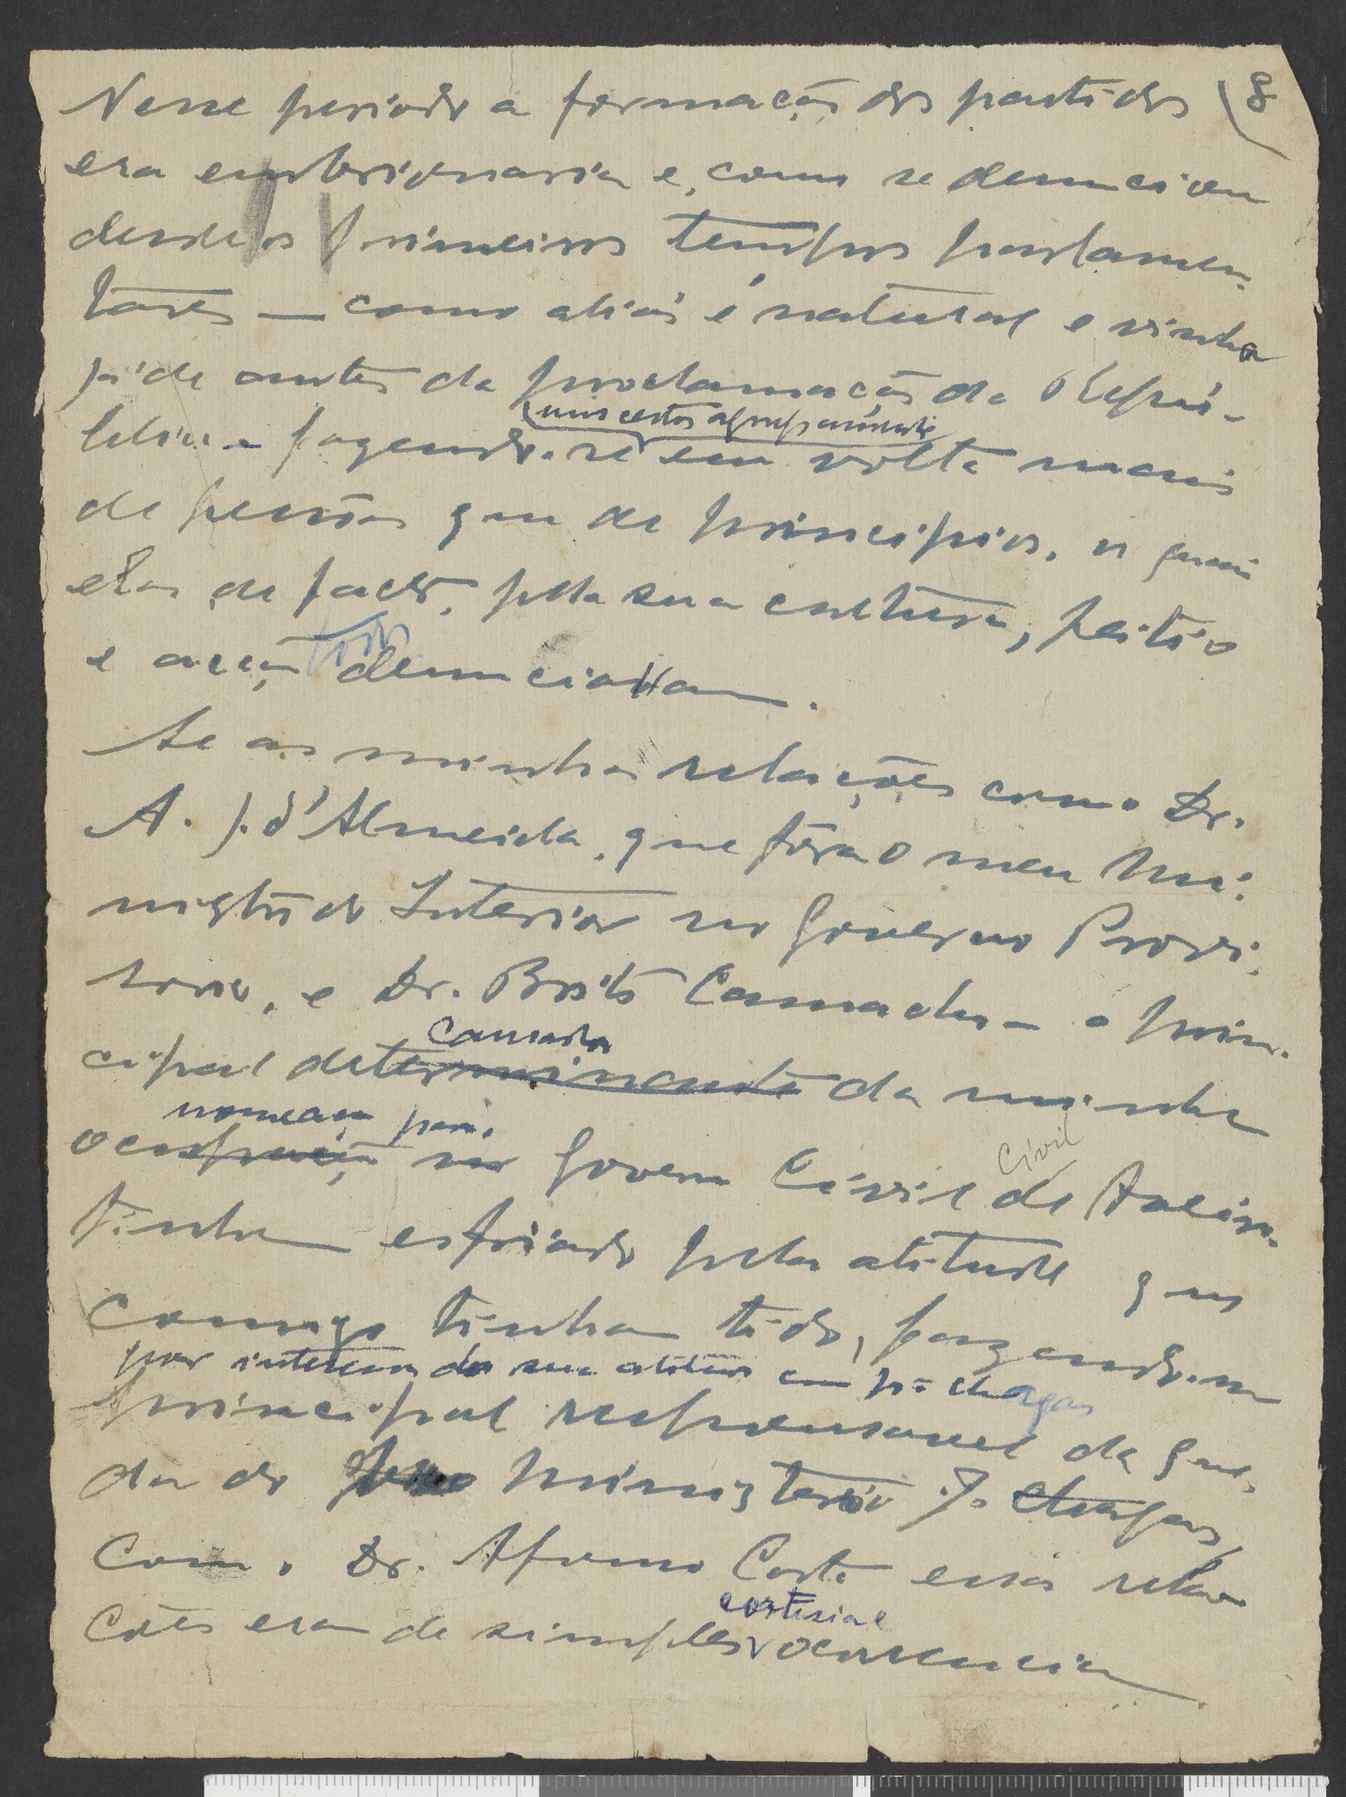 8
Nesse periodo a formação dos partidos
era embrionaria e, como se denunciou
desde os primeiros tempos parlamen-
tares — como aliás é natural e vinha
já de antes da proclamação da Repu-
blica — fazendo-se em volta mais
de pessôas que de principios, os quais
elas de facto, pela sua cultura, feitio
e acção denunciavam.
Se as minhas relações com o Dr.
A. J. d'Almeida, que fôra o meu Mi-
nistro do Interior no Governo Provi-
sorio, e Dr. Brito Camacho — o prin-
causador
cipal determinante da minha
nomeação para
ocupação no Governo Civil de
Civil
tinham esfriado pela atitude que
comigo tinham tido, fazendo-me
por intermedio da sua atitude com P. Chagas
principal responsavel da que-
da do Ministerio J. Chagas,
Com o Dr. Afonso Costa essas rela-
cortesia e
ções eram de simples ocorrencia.